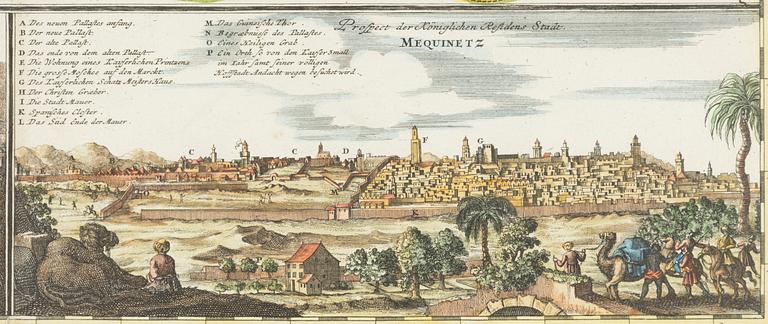 A Des neuen Pallastes anfang.
B Der neue Pallast.
C Der alte Pallast.
D Das ende von dem alten Pallast.
E Die Wohnung eines Kayserlichen Printzens
F Die grosse Moschee auf den Marckt.
G Des Kayserlichen Schatz Meisters Haus.
H Der Christen Græber.
I Die Stadt Mauer.
K Spanisches Closter.
L Das Süd Ende der Mauer.
M Das Guineische Thor
N Begræbnusse des Pallastes.
O Eines Heiligen Grab.
P Ein Orth so von den Kayser 5mall
im Iahr samt seiner völligen
Hoffstadt Andacht wegen besuchet wird.
Prospect der Königlichen Residens Stadt.
MEQUINETZ
C C D F G
K